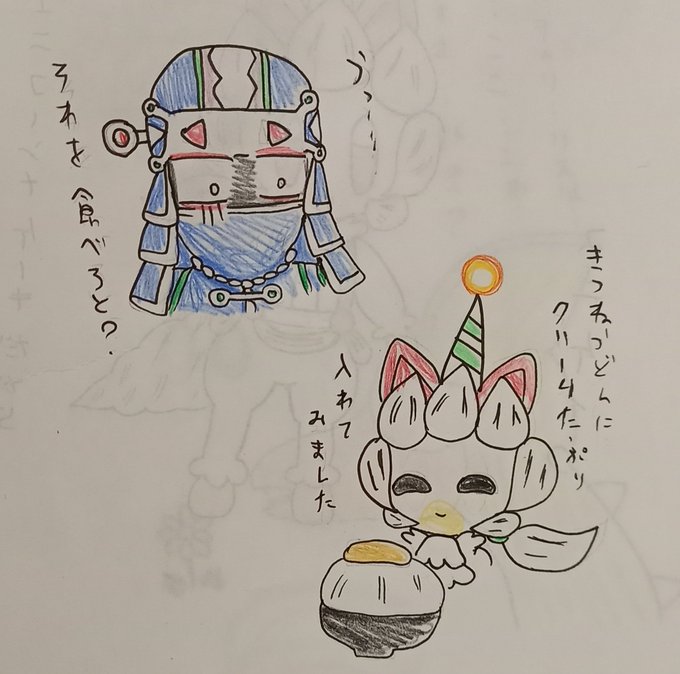 うっ…
それを 食べろと?
きつねうどんに
クリームたっぷり
入れて
みました